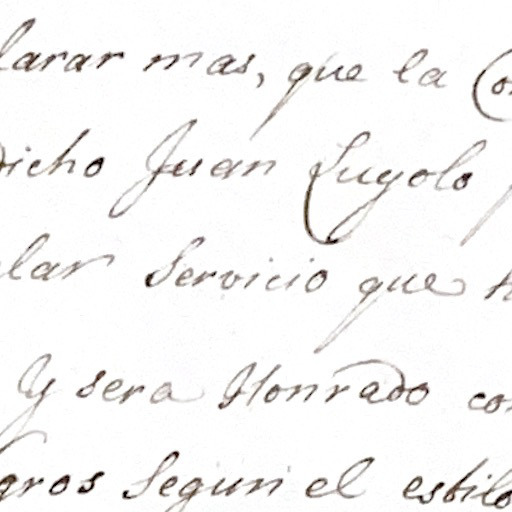 larar mas, que la Con
dicho Juan Lugolo
lar Servicio que
Y sera Honrado con
gros Segun el estilo